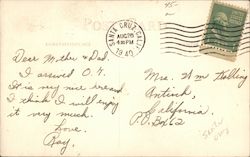 45-
POST CARD
SANTA CRUZ, CALIF.
AUG 26
4 PM
1940
Dear Mother & Dad.
I arrived O.K.
It is very nice here and
I think I will enjoy
it very much.
Love.
Ray.
Mrs. Wm
Antioch,
California
P.O. Box 62